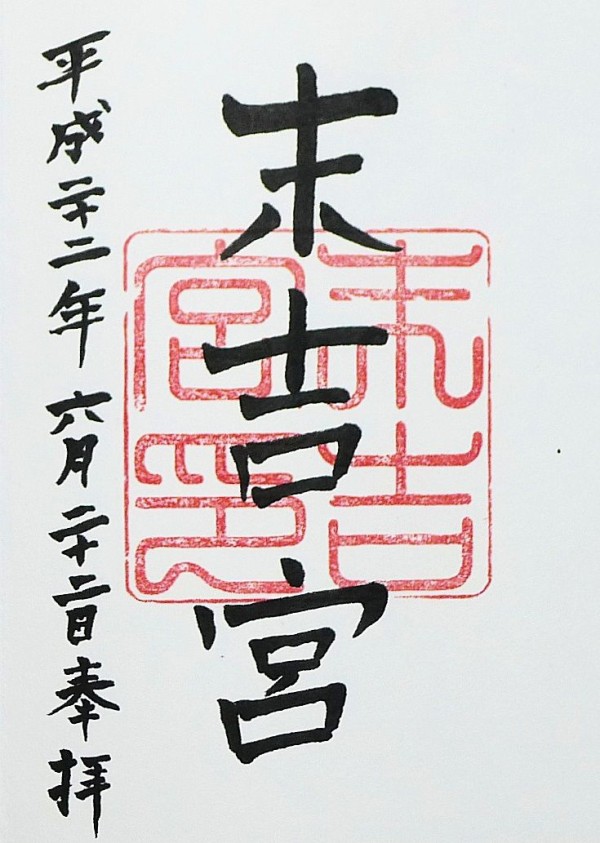 末吉宮
末吉
宮印
平成二十二年 六月二十二日奉拝